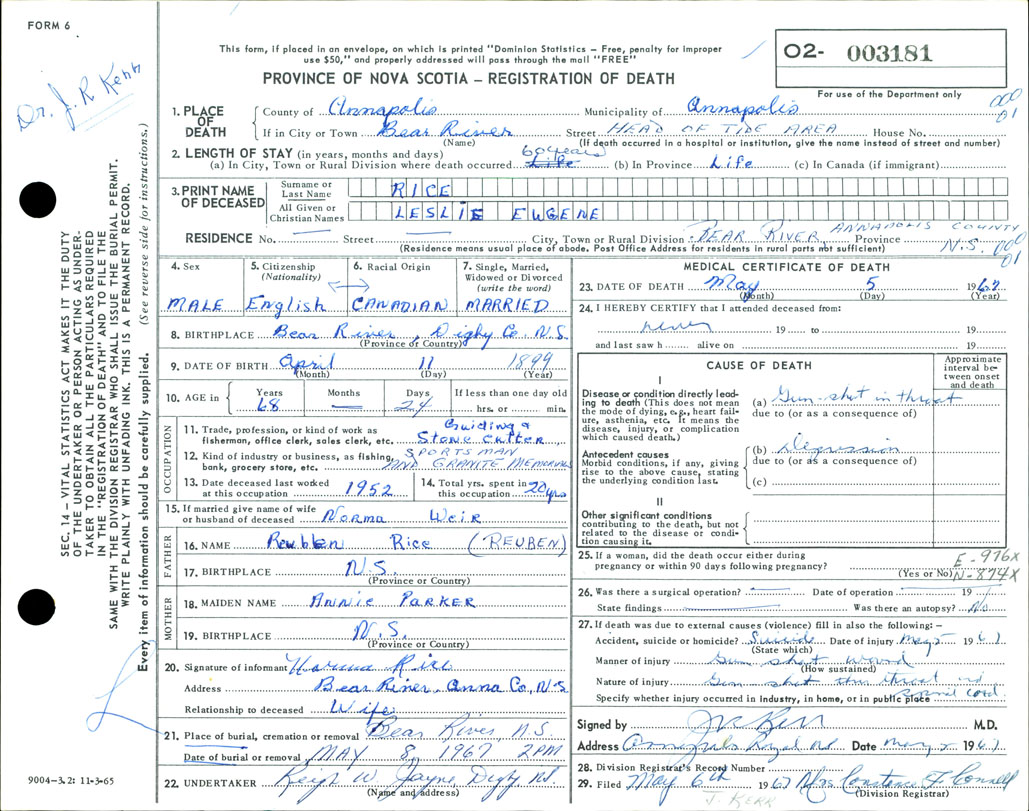 FORM 6
Dr. J. R Kerr
This form, if placed in an envelope, on which is printed "Dominion Statistics – Free, penalty for improper
use $50," and properly addressed will pass through the mail "FREE"
O2- 003181
For use of the Department only
PROVINCE OF NOVA SCOTIA – REGISTRATION OF DEATH
000
01
1. PLACE OF DEATH
County of Annapolis Municipality of Annapolis
If in City or Town Bear River Street HEAD OF TIDE AREA House No.
(Name) (If death occurred in a hospital or institution, give the name instead of street and number)
2. LENGTH OF STAY (in years, months and days) 60 years
(a) In City, Town or Rural Division where death occurred Life (b) In Province Life (c) In Canada (if immigrant)
3. PRINT NAME OF DECEASED
Surname or Last Name RICE
All Given or Christian Names LESLIE EUGENE
RESIDENCE No. — Street — City, Town or Rural Division BEAR RIVER ANNAPOLIS COUNTY Province N.S. 000
01
(Residence means usual place of abode. Post Office Address for residents in rural parts not sufficient)
4. Sex MALE
5. Citizenship (Nationality) English
6. Racial Origin CANADIAN
7. Single, Married, Widowed or Divorced (write the word) MARRIED
8. BIRTHPLACE Bear River, Digby Co. N.S.
(Province or Country)
9. DATE OF BIRTH April 11 1899
(Month) (Day) (Year)
10. AGE in Years 68 Months — Days 24 If less than one day old hrs. or min.
OCCUPATION
11. Trade, profession, or kind of work as fisherman, office clerk, sales clerk, etc. Guiding & Stone Cutter
12. Kind of industry or business, as fishing, bank, grocery store, etc. SPORTSMAN AND GRANITE MEMORIALS
13. Date deceased last worked at this occupation 1952
14. Total yrs. spent in this occupation 20 yrs
15. If married give name of wife or husband of deceased Norma Weir
FATHER
16. NAME Reublen Rice (REUBEN)
17. BIRTHPLACE N.S.
(Province or Country)
MOTHER
18. MAIDEN NAME ANNIE PARKER
19. BIRTHPLACE N.S.
(Province or Country)
20. Signature of informant Norma Rice
Address Bear River, Anna Co, N.S
Relationship to deceased Wife
21. Place of burial, cremation or removal Bear River, N.S.
Date of burial or removal MAY 8, 1967 2PM
22. UNDERTAKER W. Jayne, Digby NS.
(Name and address)
MEDICAL CERTIFICATE OF DEATH
23. DATE OF DEATH May 5 1967
(Month) (Day) (Year)
24. I HEREBY CERTIFY that I attended deceased from:
never 19 to 19
and last saw h alive on 19
CAUSE OF DEATH
Approximate interval between onset and death
I
Disease or condition directly leading to death (This does not mean the mode of dying, e.g., heart failure, asthenia, etc. It means the disease, injury, or complication which caused death.)
(a) Gun-shot in throat
due to (or as a consequence of)
Antecedent causes
Morbid conditions, if any, giving rise to the above cause, stating the underlying condition last.
(b) Depression
due to (or as a consequence of)
(c)
II
Other significant conditions contributing to the death, but not related to the disease or condition causing it.
25. If a woman, did the death occur either during pregnancy or within 90 days following pregnancy?
(Yes or No)
E-976X
N-874X
26. Was there a surgical operation? — Date of operation 19
State findings Was there an autopsy? No
27. If death was due to external causes (violence) fill in also the following:–
Accident, suicide or homicide? Suicide Date of injury May 5 1967.
(State which)
Manner of injury Gun shot wound
(How sustained)
Nature of injury Gun shot thru throat
Specify whether injury occurred in industry, in home, or in public place
Signed by J R Kerr M.D.
Address Annapolis Royal NS Date May 5 1967.
28. Division Registrar's Record Number
29. Filed May 6th 1967 Mrs Constance F. Connell
(Division Registrar)
J. KERR
SEC. 14 – VITAL STATISTICS ACT MAKES IT THE DUTY
OF THE UNDERTAKER OR PERSON ACTING AS UNDER-
TAKER TO OBTAIN ALL THE PARTICULARS REQUIRED
IN THE "REGISTRATION OF DEATH" AND TO FILE THE
SAME WITH THE DIVISION REGISTRAR WHO SHALL ISSUE THE BURIAL PERMIT.
WRITE PLAINLY WITH UNFADING INK. THIS IS A PERMANENT RECORD.
Every item of information should be carefully supplied. (See reverse side for instructions.)
9004-3.2: 11-3-65